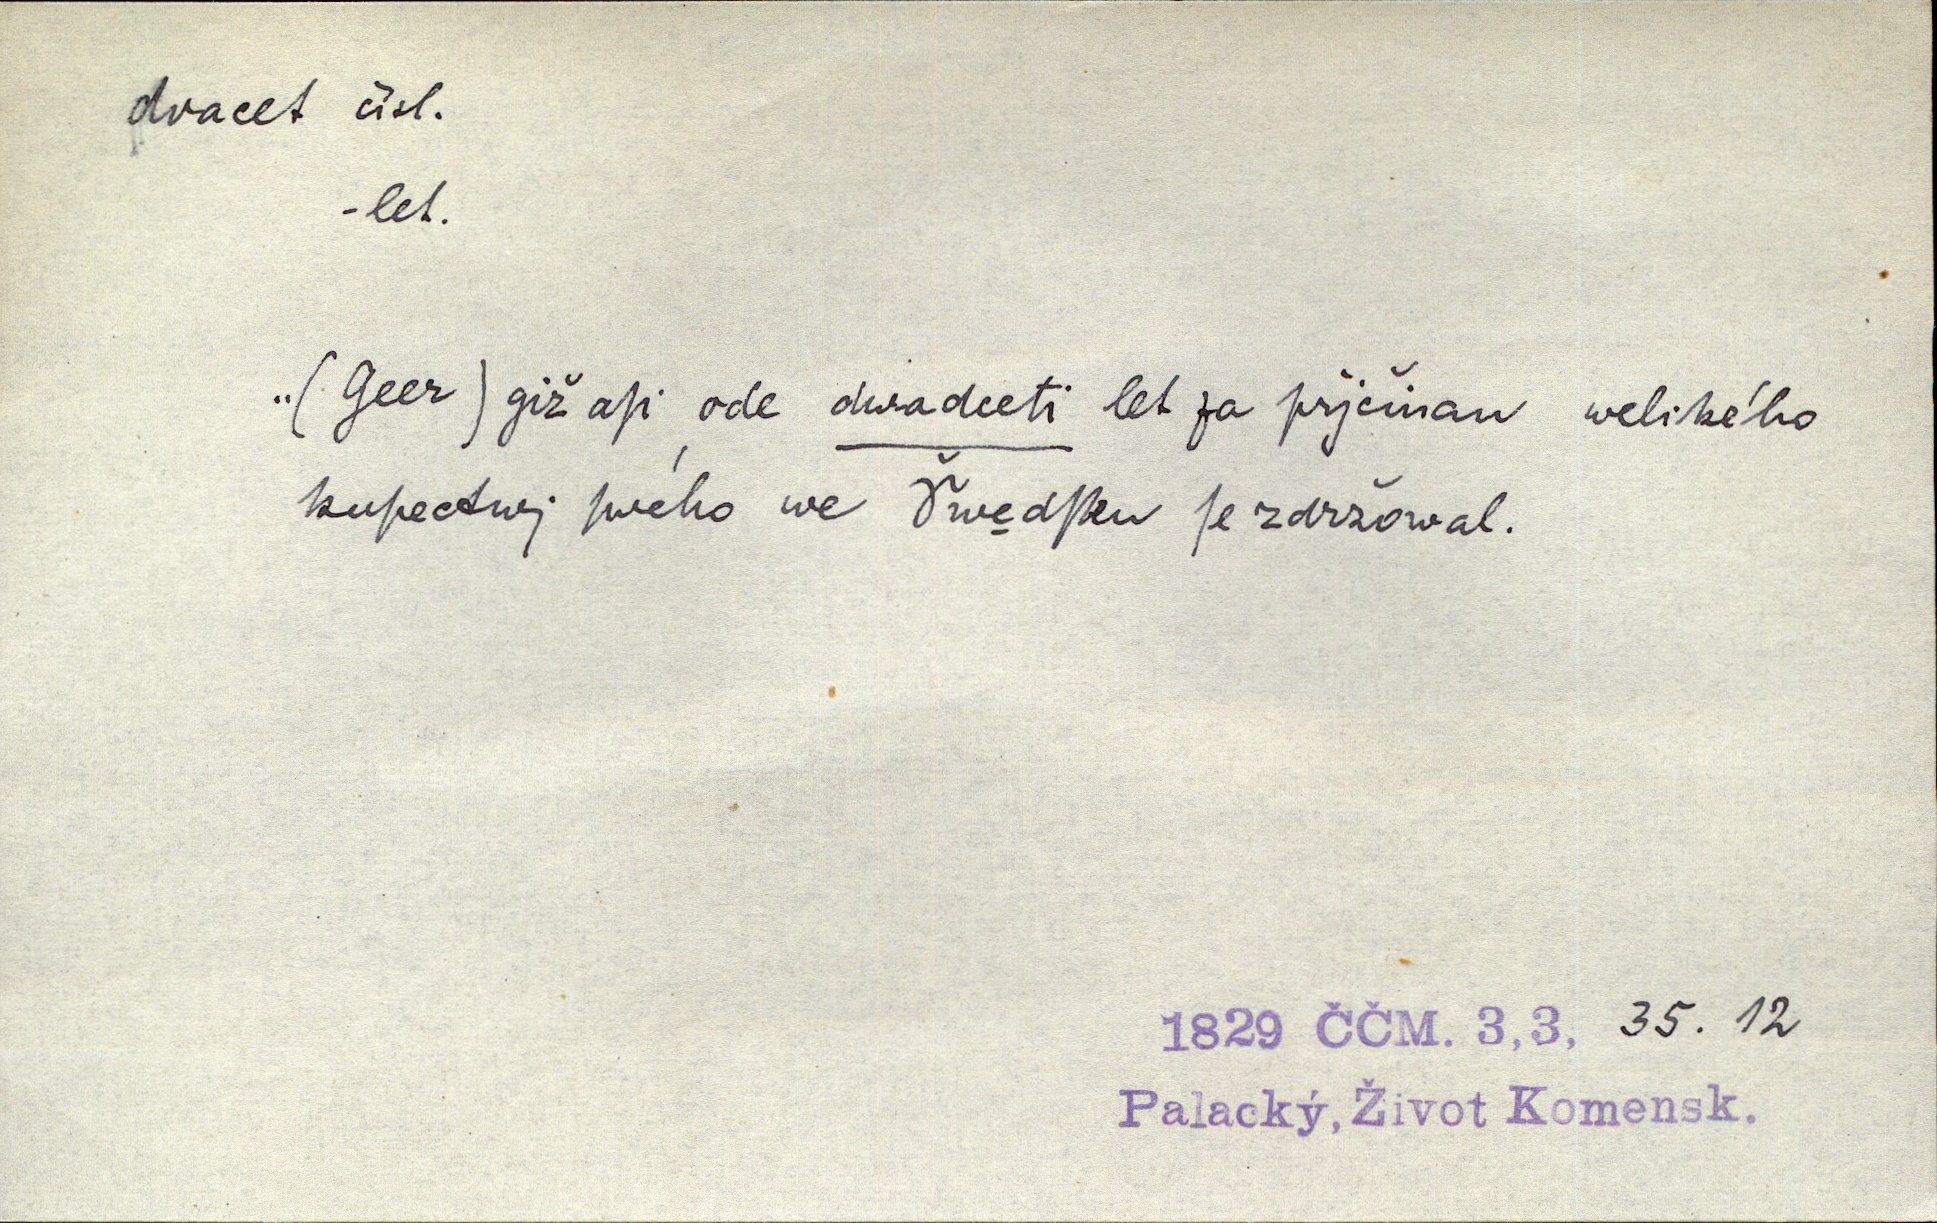 dvacet čísl.
-let.
„(Geer) giž aſi ode dwadceti let za přjčinau welikého
kupectwj ſwého we Šwedſku ſe zdržowal.
1829 ČČM. 3,3, 35. 12
Palacký, Život Komensk.